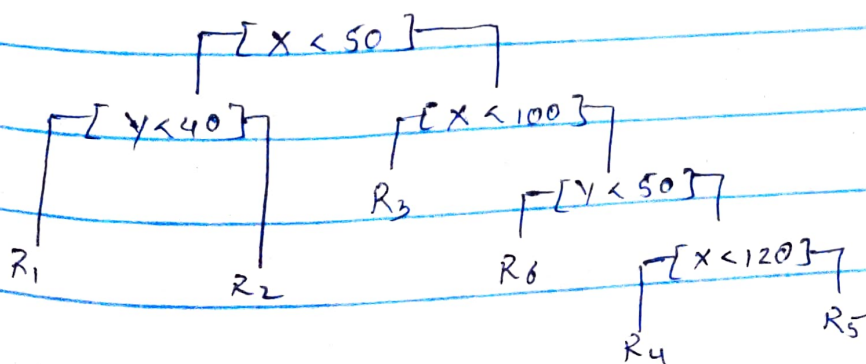 [X < 50]
[Y < 40] [X < 100]
R3 [Y < 50]
R1 R2 R6 [X < 120]
R4 R5